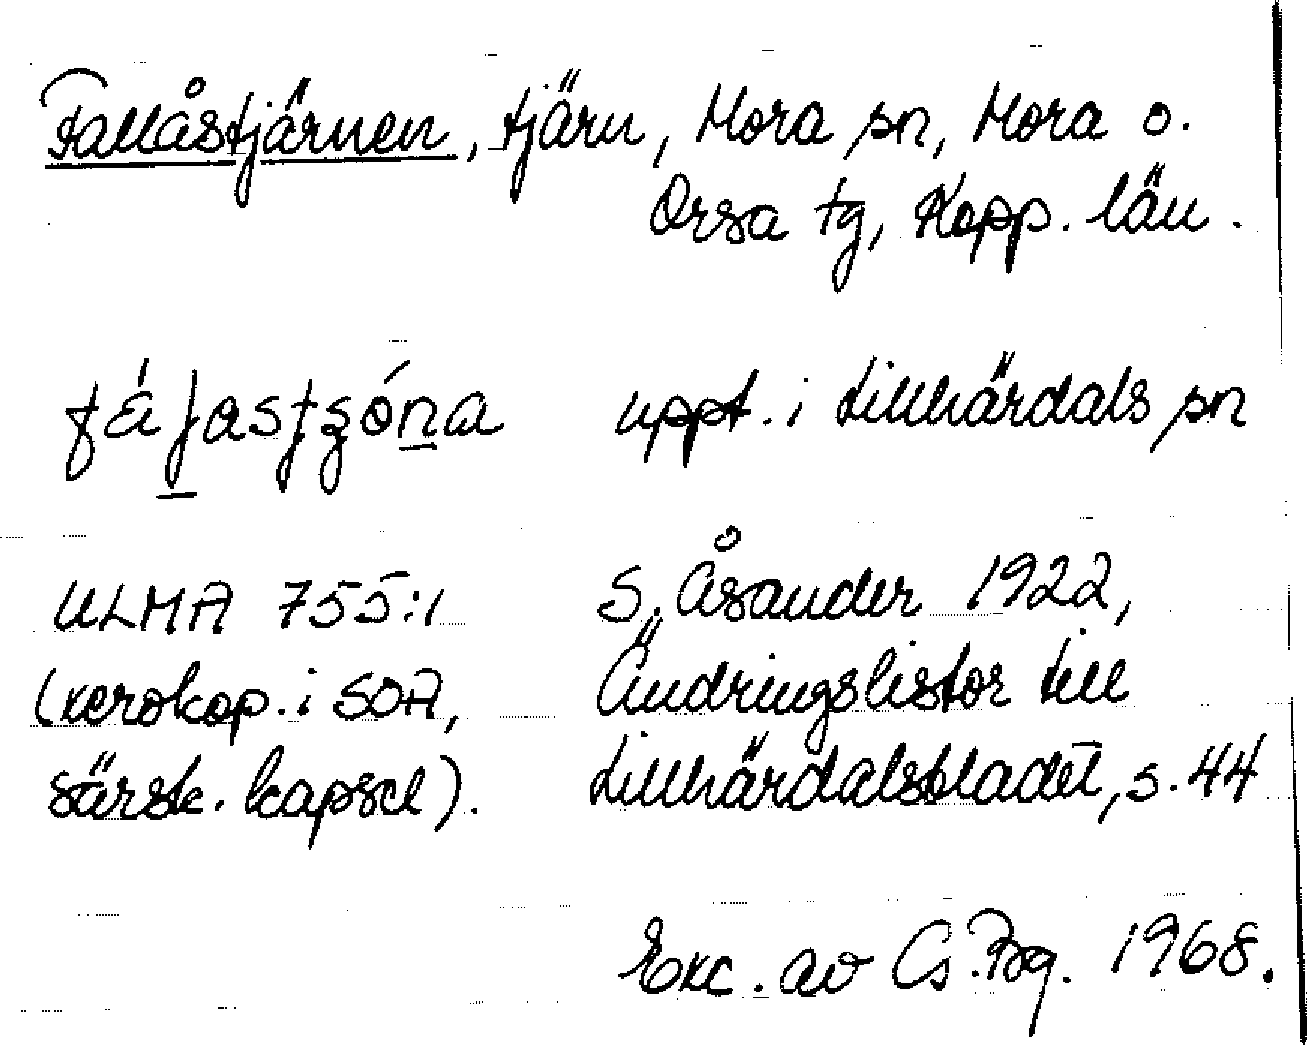 Fallåstjärnen, tjärn, Mora sn, Mora o.
Orsa tg, Kopp. län.
uppt. i Lillhärdals sn
ULMA 755:1
(xerokop. i SOA,
särsk. kapsel).
S. Åsander 1922,
Ändringslistor till
Lillhärdalsbladet, s. 44
Exc. av Cs. Bg. 1968.